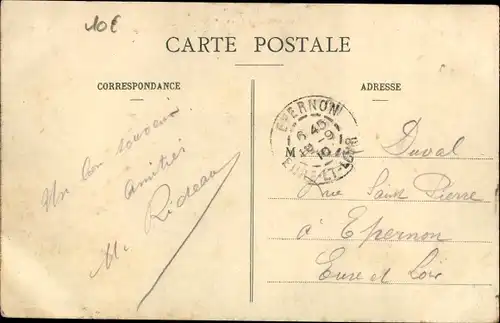 10€
CARTE POSTALE
CORRESPONDANCE
ADRESSE
EPERNON
6 45
EURE-ET-LOIR
M Duval
Rue Saint Pierre
à Epernon
Eure et Loir
Un bon souvenir
Amitiés
M. Rideau